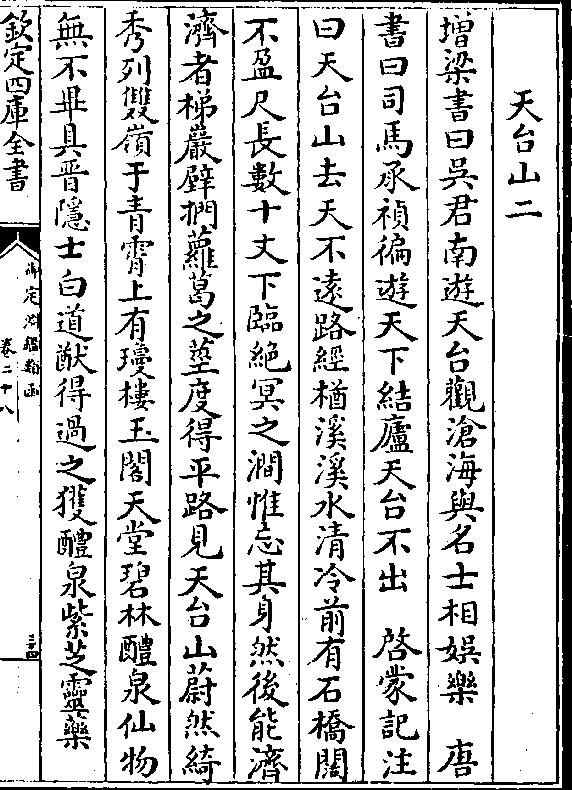 天台山二
增梁書曰吳君南遊天台觀滄海與名士相娛樂　唐
書曰司馬承禎徧遊天下結廬天台不出　啓蒙記注
曰天台山去天不遠路經楢溪溪水清冷前有石橋闊
不盈尺長數十丈下臨絶冥之澗惟忘其身然後能濟
濟者梯巖壁捫蘿葛之莖度得平路見天台山蔚然綺
秀列雙嶺于青霄上有瓊樓玉閣天堂碧林醴泉仙物
無不畢具晉隱士白道猷得過之獲醴泉紫芝靈藥
欽定四庫全書
御定淵鑑類函
卷二十八
三十四